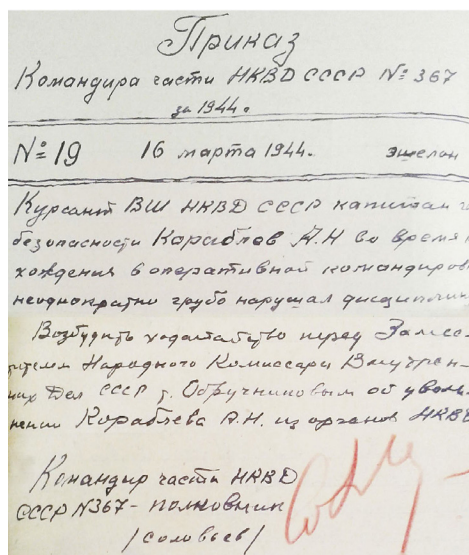 Приказ
Командира части НКВД СССР № 367
за 1944г.
№ 19 16 марта 1944г. эшелон
Курсант ВШ НКВД СССР капитан г
безопасности Кораблев А.Н во время н
хождения в оперативной командиров
неоднократно грубо нарушал дисциплин
Возбудить ходатайство перед Замес-
тителем Народного Комиссара Внутрен-
них Дел СССР т. Обручниковым об уволь-
нении Кораблева А.Н. из органов НКВД
Командир части НКВД
СССР N367 - полковник
/Соловьев/